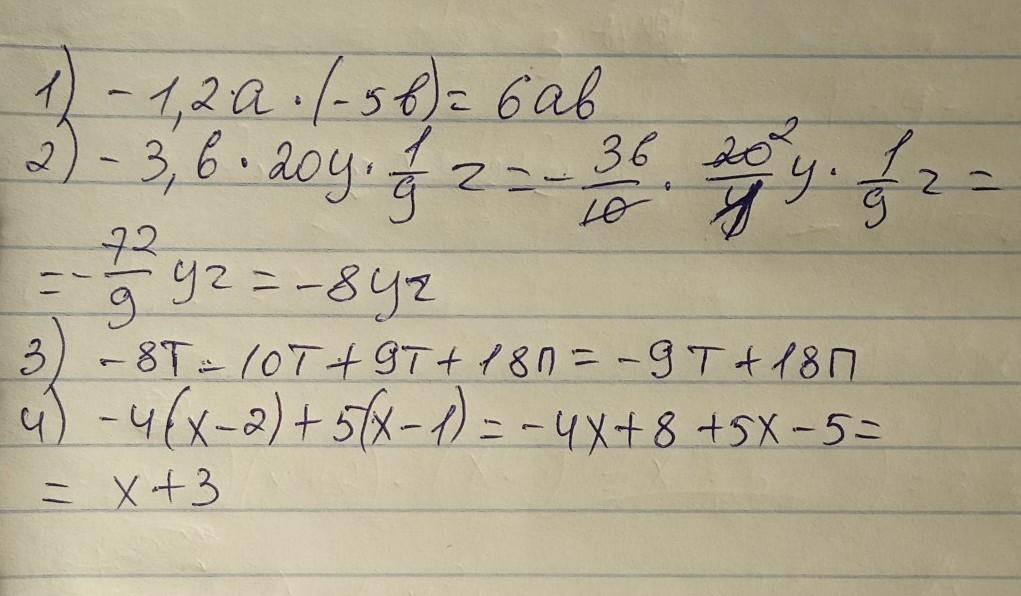 1) -1,2·a·(-5в)= 6ав
2) -3,6·20y·1/9 z = -36/10 · 20²/1 y · 1/9 z =
= -72/9 yz = -8yz
3) -8т-10т+9т+18п = -9т+18п
4) -4(x-2)+5(x-1)=-4x+8+5x-5=
= x+3